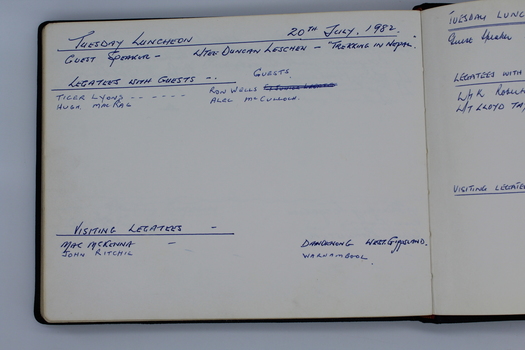 TUESDAY LUNCHEON 20TH JULY, 1982.
GUEST SPEAKER - L/TEE DUNCAN LESCHEN - "TREKKING IN NEPAL".
LEGATEES WITH GUESTS -. GUESTS
TIGER LYONS - - - - - - RON WELLS
HUGH MACRAE ALEC McCULLOCH.
VISITING LEGATEES -
MAC McKENNA - DANDENONG WEST GIPPSLAND.
JOHN RITCHIE WARNAMBOOL.
TUESDAY LUNC
Guest Speaker
LEGATEES WITH
L/R ROBE
L/T LLOYD TA
VISITING LEGATEE